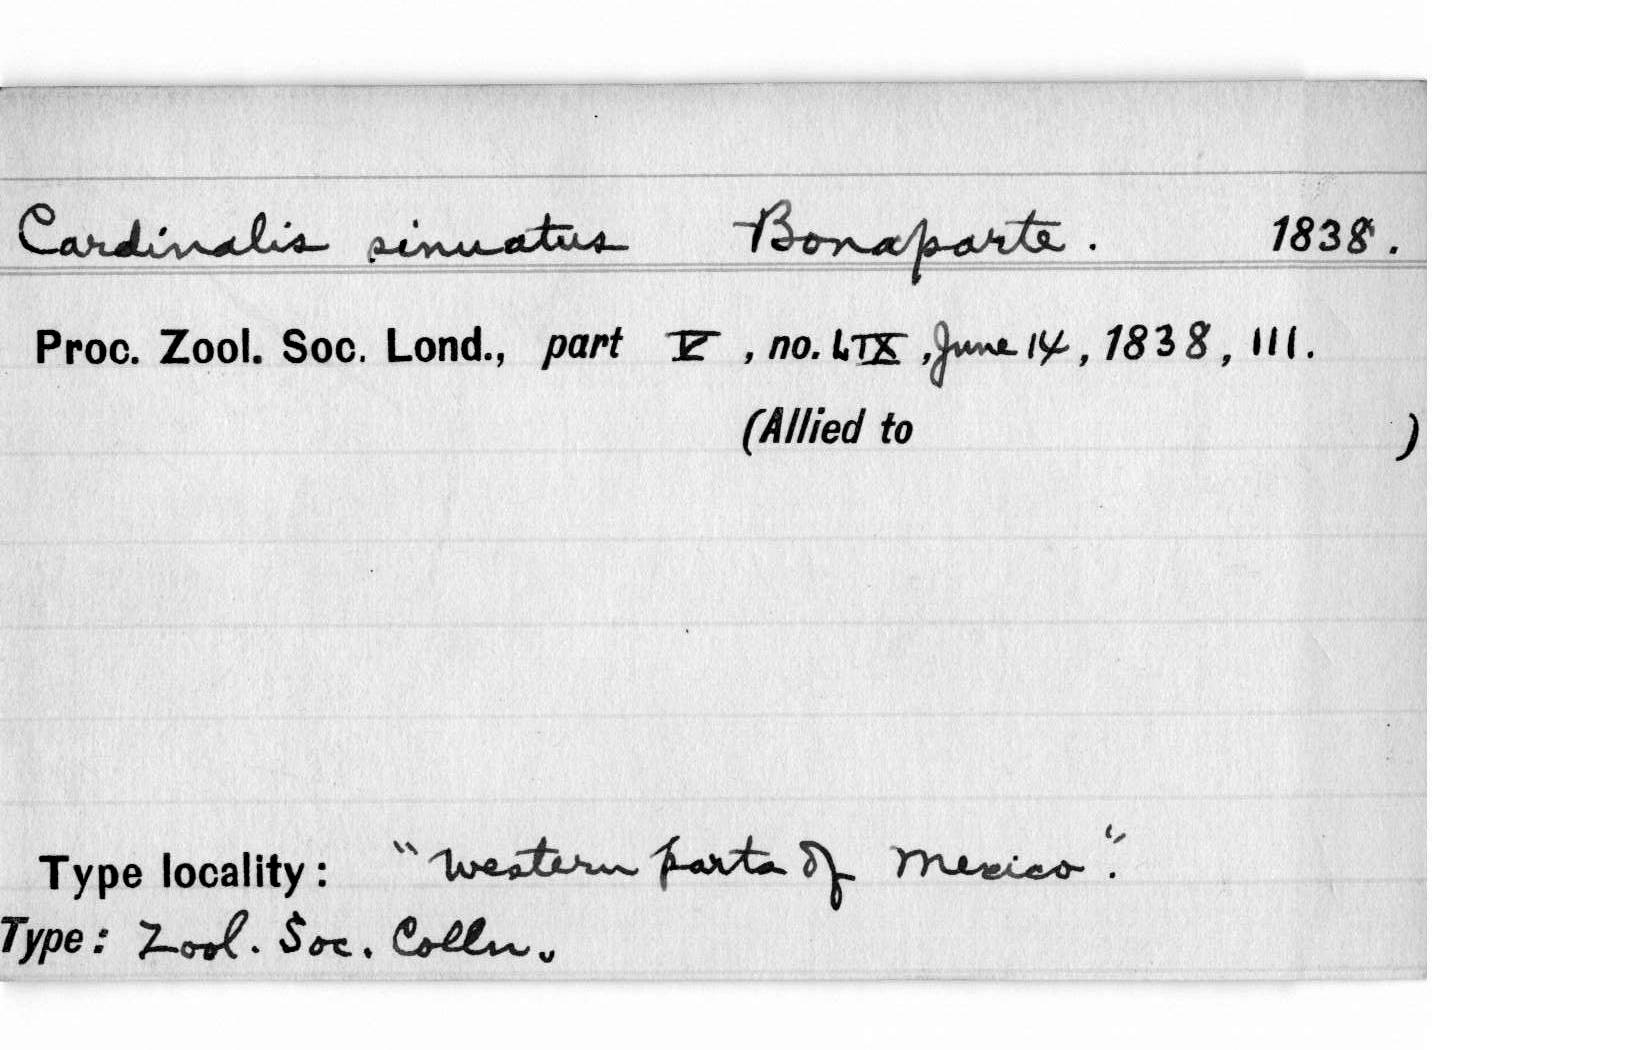 Cardinalis sinuatus Bonaparte. 1838.
Proc. Zool. Soc. Lond., part V, no. LIX, June 14, 1838, 111.
(Allied to )
Type locality: "Western parts of Mexico".
Type: Zool. Soc. Colln.